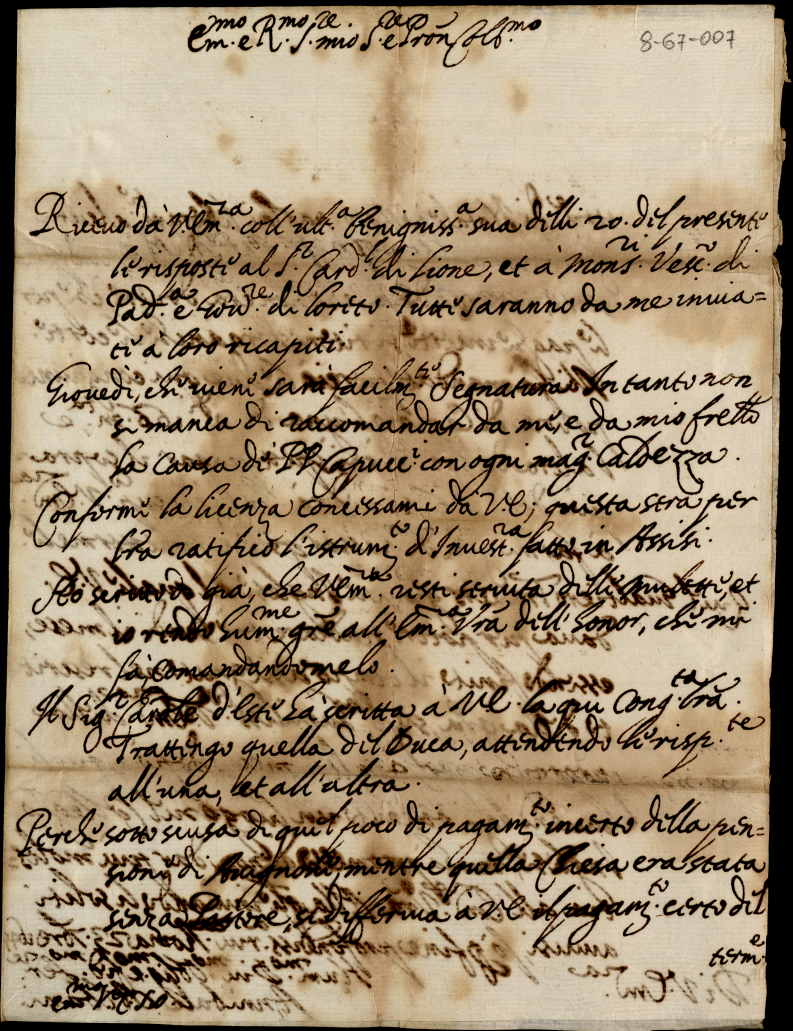 Em.mo e R.mo S.re mio S.re e Pron Col.mo
8-67-007
Riceuo dà V. Em.za coll'ult.a benigniss.a sua delli 20. del presente
le risposte al S.r Card.l di Lione, et à Mons.ri Vesc.o di
Pad.a e Gou.re di Loreto. Tutte saranno da me inuia=
te à loro ricapiti.
Giouedi, che viene sarà facilm.te Segnatura. Intanto non
si manca di raccomandar da me, e da mio frello
la causa de PP. Capucc.i con ogni mag.r caldezza.
Conforme la licenza concessami da V. E; questa stra per
lra ratifico l'istrum.to d'Inuest.ra fatto in Assisi.
Hò scritto già, che V. Em.za resti seruita delle Mulette, et
io rendo hum.me gre all'Em.a Vra dell'honor, che mi
fà comandandomelo.
Il Sig.r d'Este hà scritta à V. E. la qui Cong.ta lra.
Trattengo quella del Duca, attendendo le risp.te
all'una, et all'altra.
Perche sotto scusa di quel poco di pagam.to incerto della pen=
sione di Auignone, mentre quella Chiesa era stata
senza Pastore, si differiua à V. E. il pagam.to certo del
term.e